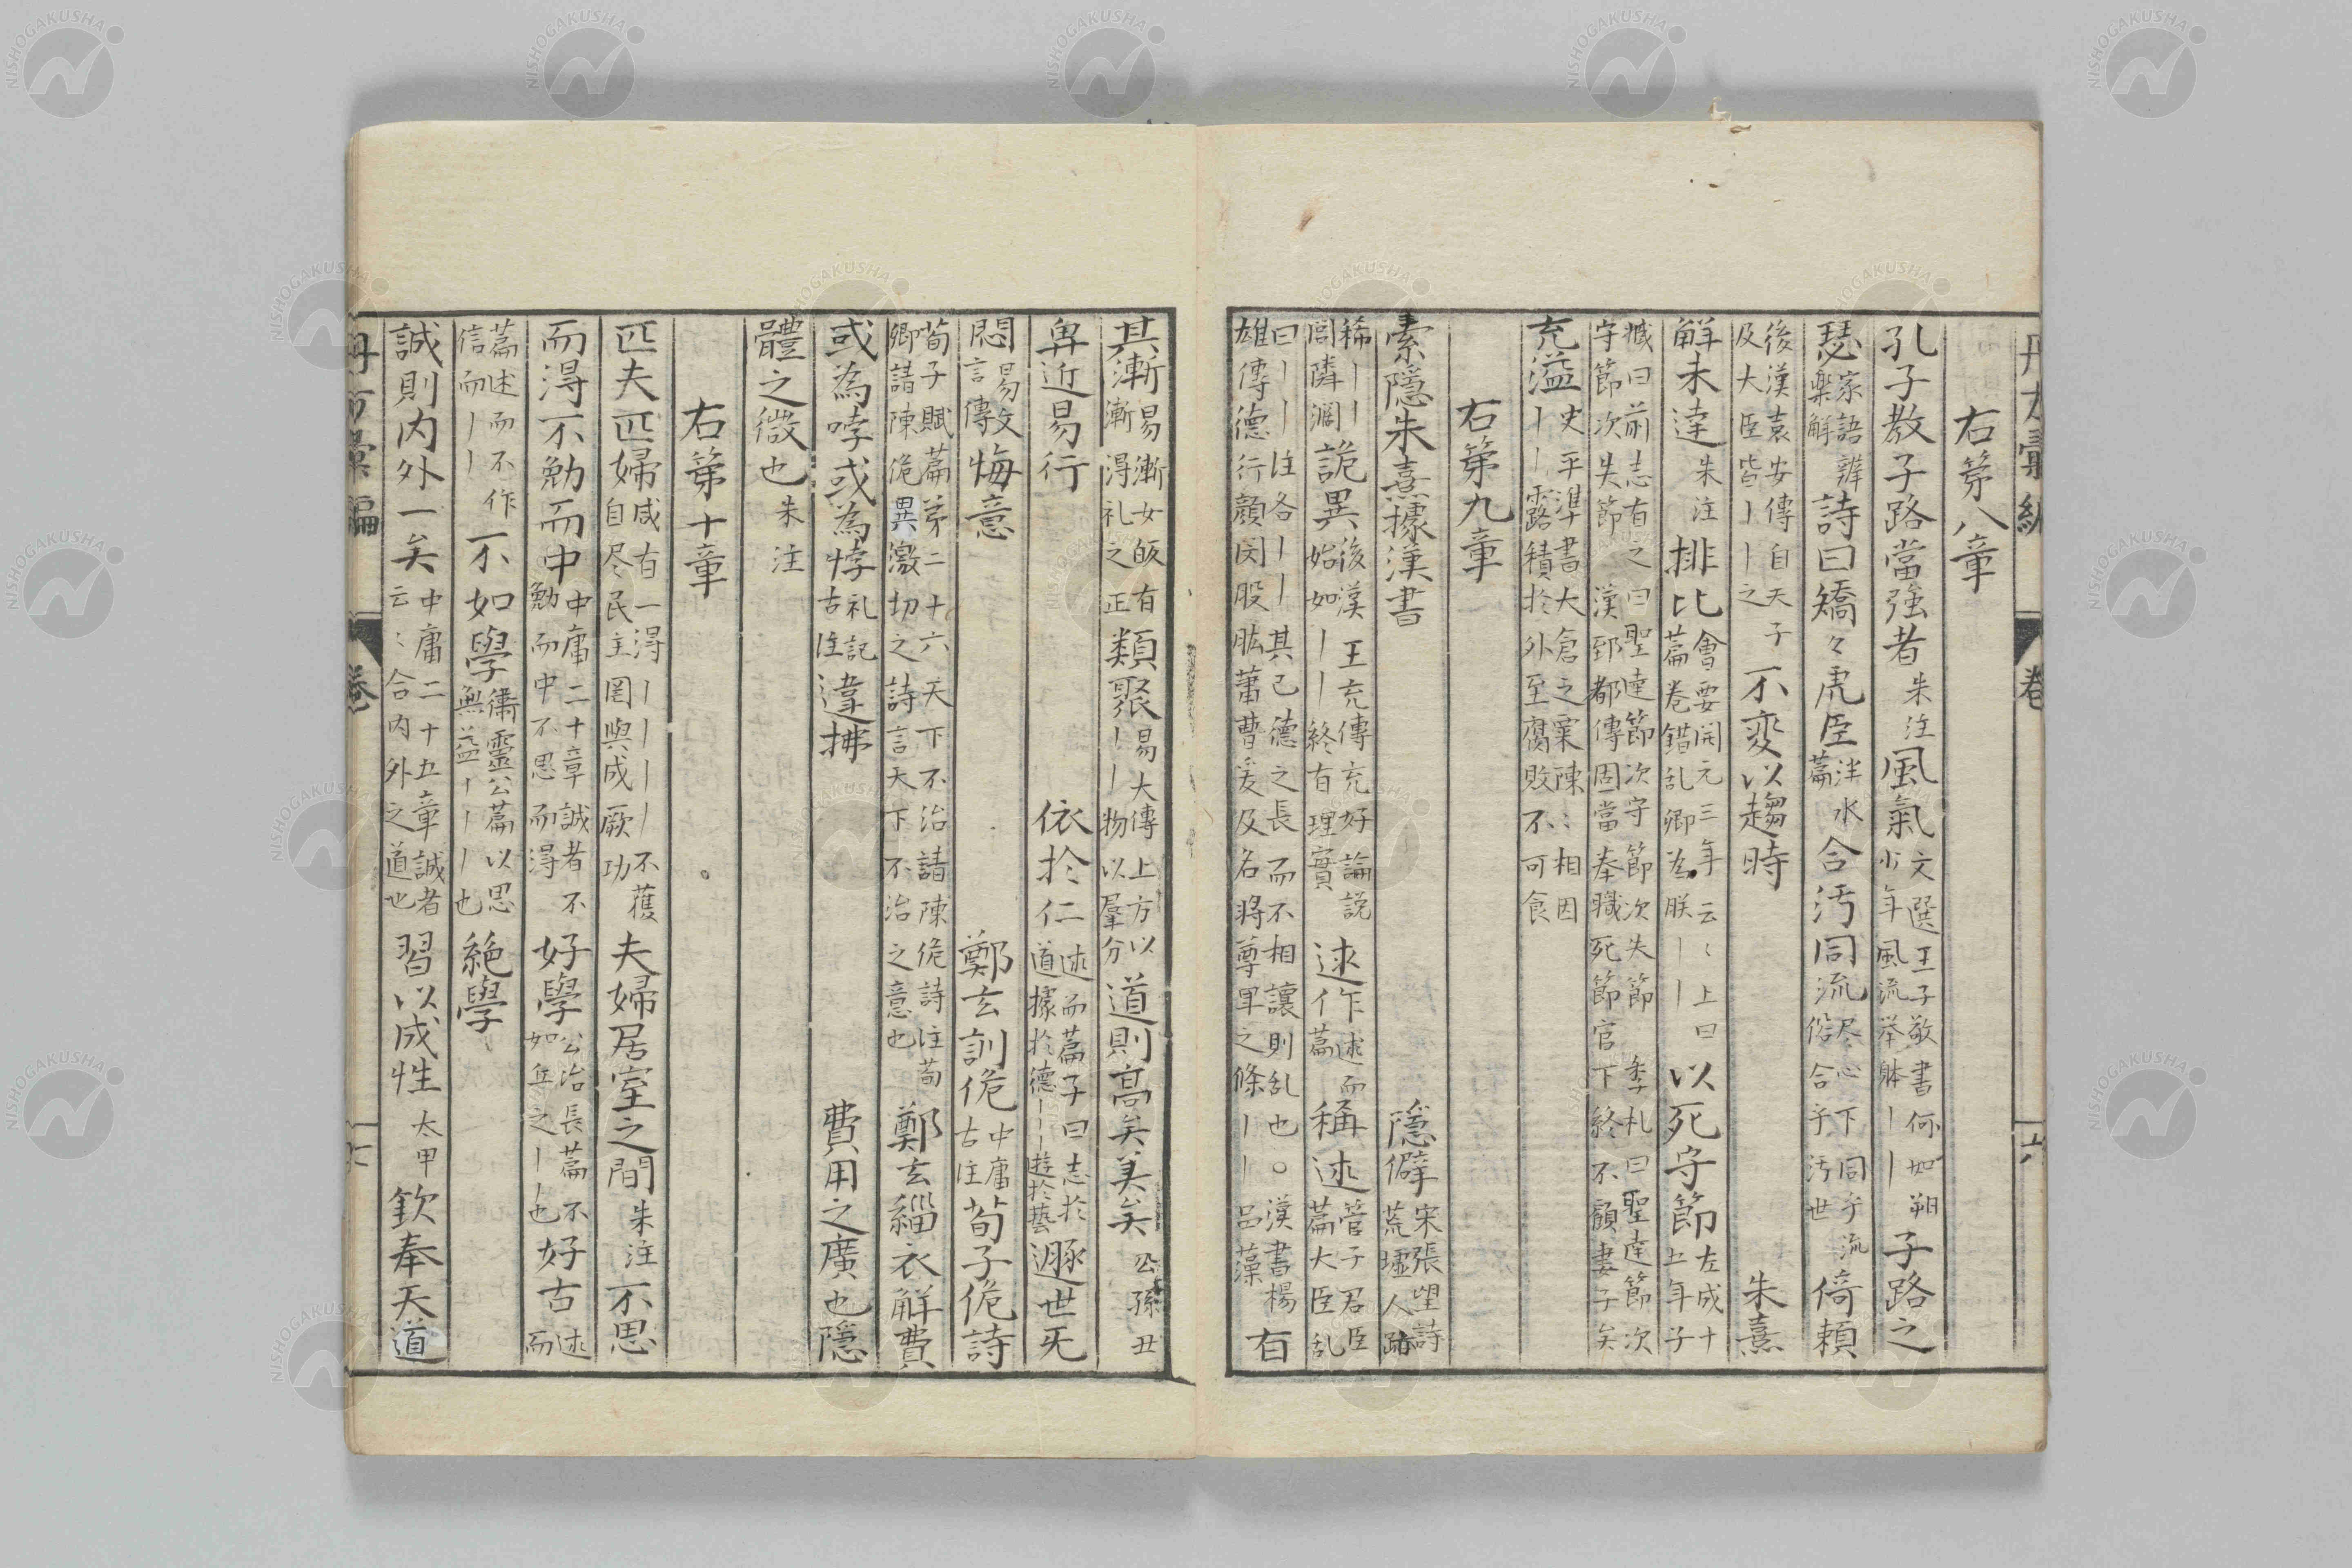 右第八章
孔子教子路當強者朱注風氣文選王子敬書何如朔少年風流举躰丨丨子路之
瑟家語辨楽解詩曰矯々虎臣泮水篇合汚同流尽心下同乎流俗合乎汚世倚頼
後漢袁安傳自天子及大臣皆丨丨之不変以趨時朱熹
解未達朱注排比會要開元三年云〻上曰篇卷錯乱卿為朕丨丨以死守節左成十五年子
臧曰前志有之曰聖達節次守節次失節季札曰聖達節次守節次失節漢郅都傳固當奉職死節官下終不顧妻子矣
充溢史平準書大倉之粟陳〻相因丨丨露積於外至腐敗不可食
右第九章
索隠朱熹據漢書隠僻宋張望詩荒墟人跡
稀丨丨閭隣濶詭異後漢王充傳充好論説始如丨丨終有理實述作述而篇稱述管子君臣篇大臣乱
曰丨丨注各丨丨其己德之長而不相讓則乱也○漢書楊雄傳德行顏閔股肱蕭曹爰及名將尊卑之條丨丨品藻有
其漸易漸女皈有漸得礼之正類聚易大傳上方以丨丨物以羣分道則高矣美矣公孫丑
卑近易行依於仁述而篇子曰志於道據於德丨丨丨遊於藝遯世无
悶易文言傳悔意鄭玄訓佹中庸古注荀子佹詩
荀子賦篇第二十六天下不治請陳佹詩注荀卿請陳佹異激切之詩言天下不治之意也鄭玄緇衣解費
或為哱或為悖礼記古注違拂費用之廣也隠
體之微也朱注
右第十章
匹夫匹婦咸有一得丨丨丨丨不獲自尽民主罔與成厥功夫婦居室之間朱注不思
而得不勉而中中庸二十章誠者不勉而中不思而得好學公冶長篇不如丘之丨也好古述而
篇述而不作信而丨丨不如學衛靈公篇以思無益丨丨丨也絶學
誠則内外一矣中庸二十五章誠者云〻合内外之道也習以成性太甲欽奉天道